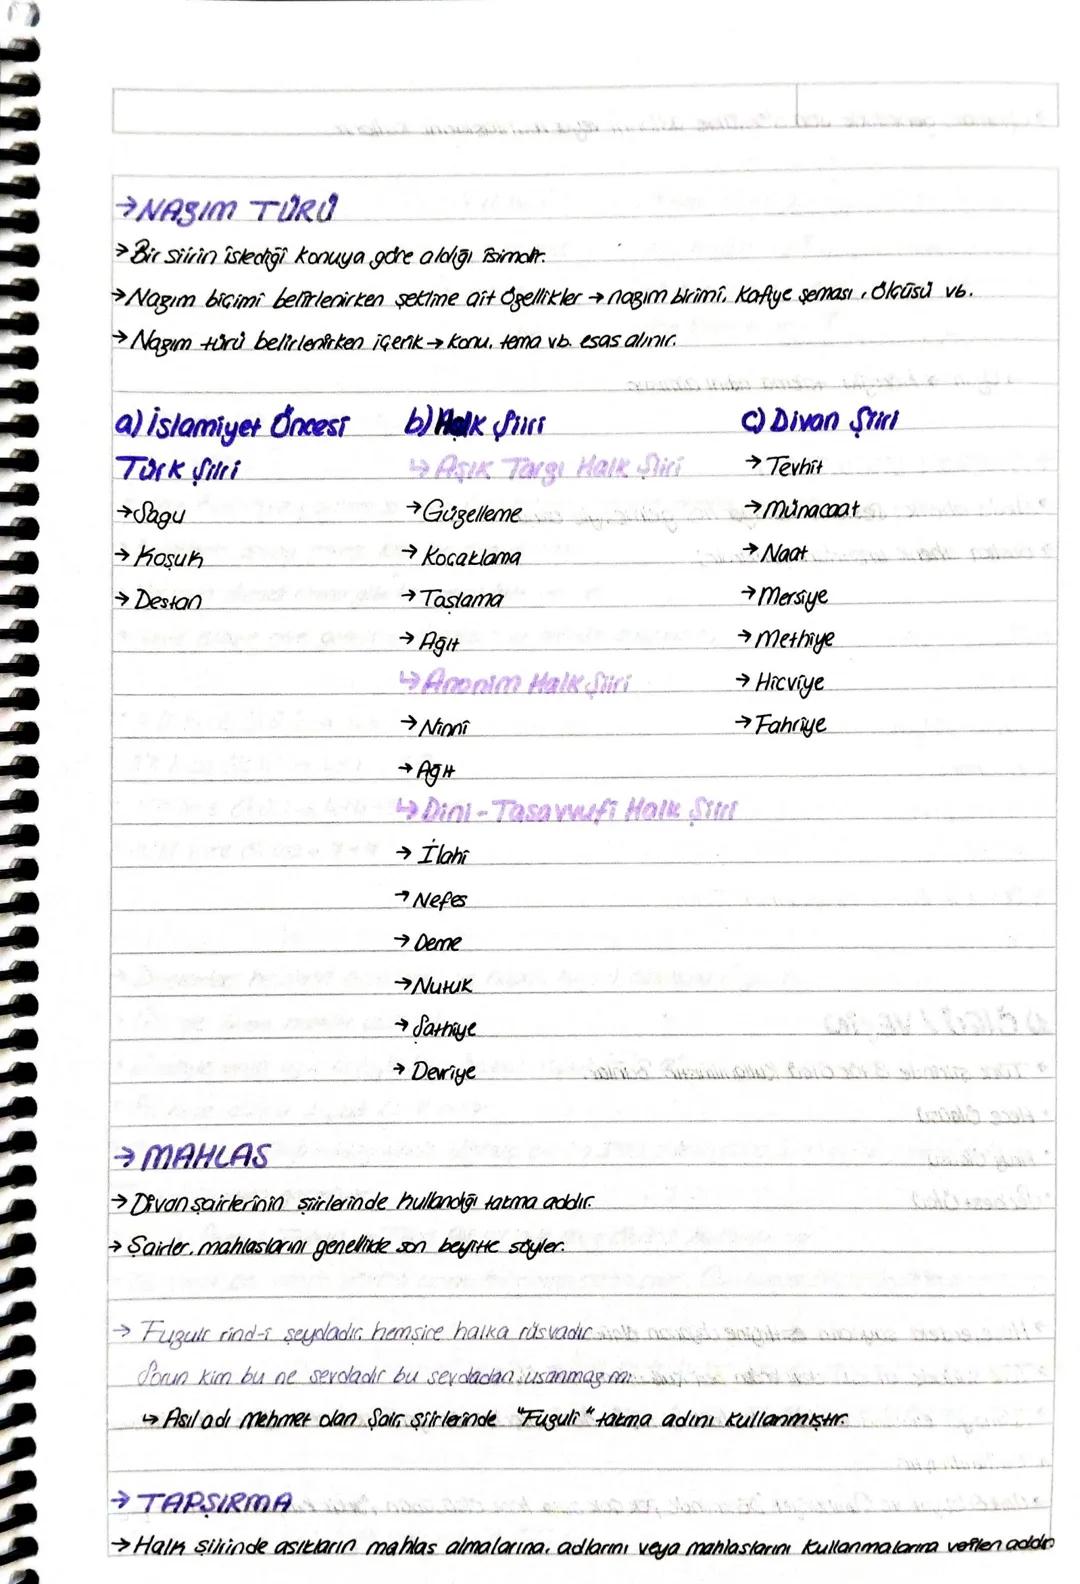 →NAZIM TÜRÜ
→Bir şiirin işlediği konuya göre aldığı isimdir.
→Nazım biçimi belirlenirken şekline ait özellikler → nazım birimi, kafiye şeması, ölçüsü vb.
→Nazım türü belirlenirken içerik → konu, tema vb. esas alınır.
a) İslamiyet Öncesi Türk Şiiri
→Sagu
→Koşuk
→Destan
b) Halk Şiiri
↳Aşık Tarzı Halk Şiiri
→Güzelleme
→Koçaklama
→Taşlama
→Ağıt
↳Anonim Halk Şiiri
→Ninni
→Ağıt
↳Dini-Tasavvufi Halk Şiiri
→İlahi
→Nefes
→Deme
→Nutuk
→Şathiye
→Devriye
c) Divan Şiiri
→Tevhit
→Münacaat
→Naat
→Mersiye
→Methiye
→Hicviye
→Fahriye
→MAHLAS
→Divan şairlerinin şiirlerinde kullandığı takma addır.
→Şairler, mahlaslarını genellikle son beyitte söyler.
→ Fuzuli rind-i şeydadır, hemşire halka rüsvadır
Sorun kim bu ne sevdadır bu sevdadan usanmaz mı
↳ Asıl adı Mehmet olan Şair şiirlerinde "Fuzuli" takma adını kullanmıştır.
→TAPŞIRMA
→Halk şiirinde aşıkların mahlas almalarına, adlarını veya mahlaslarını kullanmalarına verilen addır